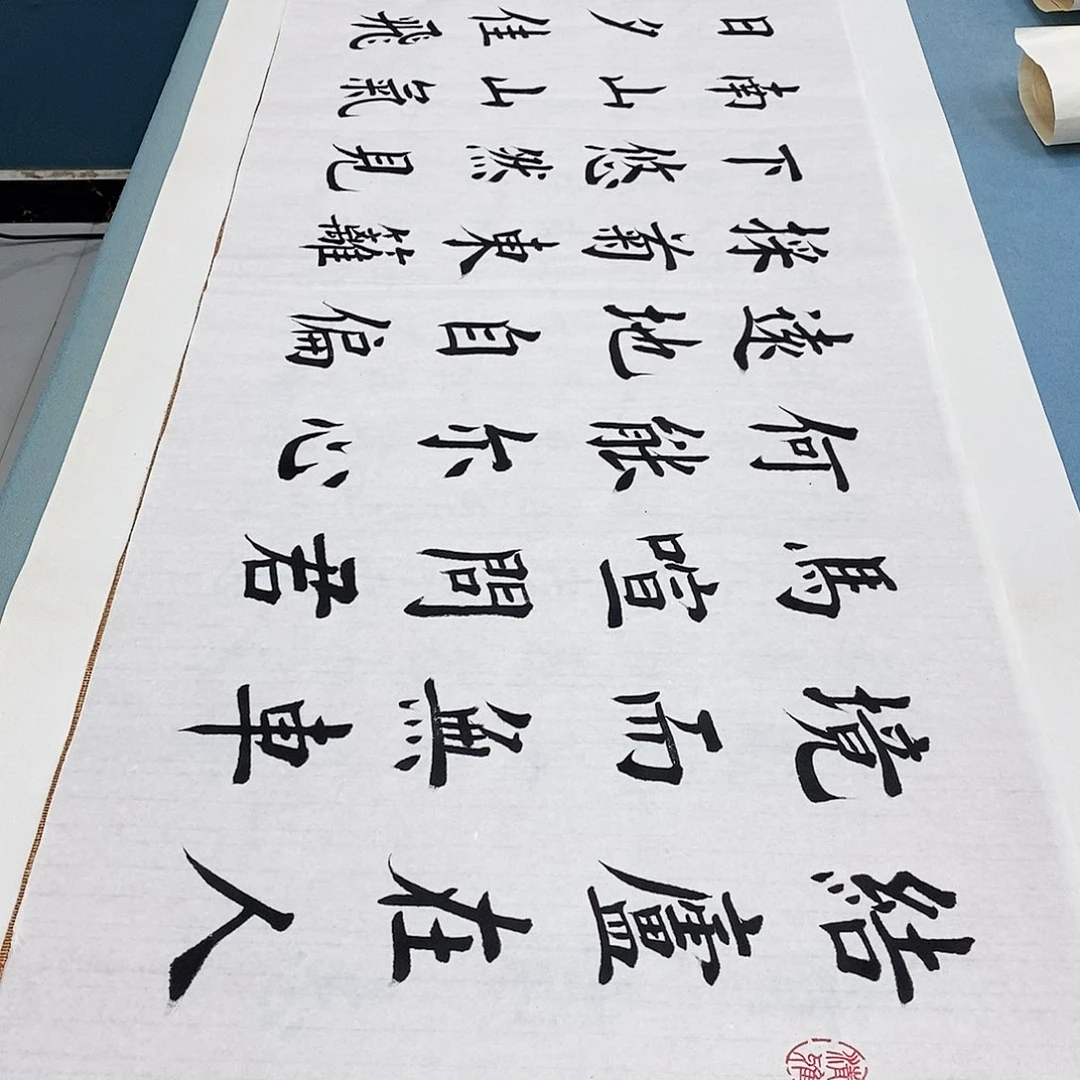 結廬在人
境而無車
馬喧問君
何能尔心
遠地自偏
採菊東籬
下悠然見
南山山氣
日夕佳飛